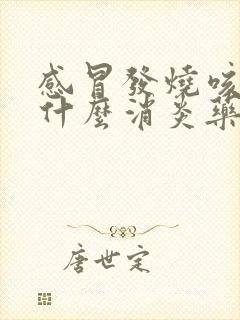 感冒發燒咳
什麼消炎藥
唐世定